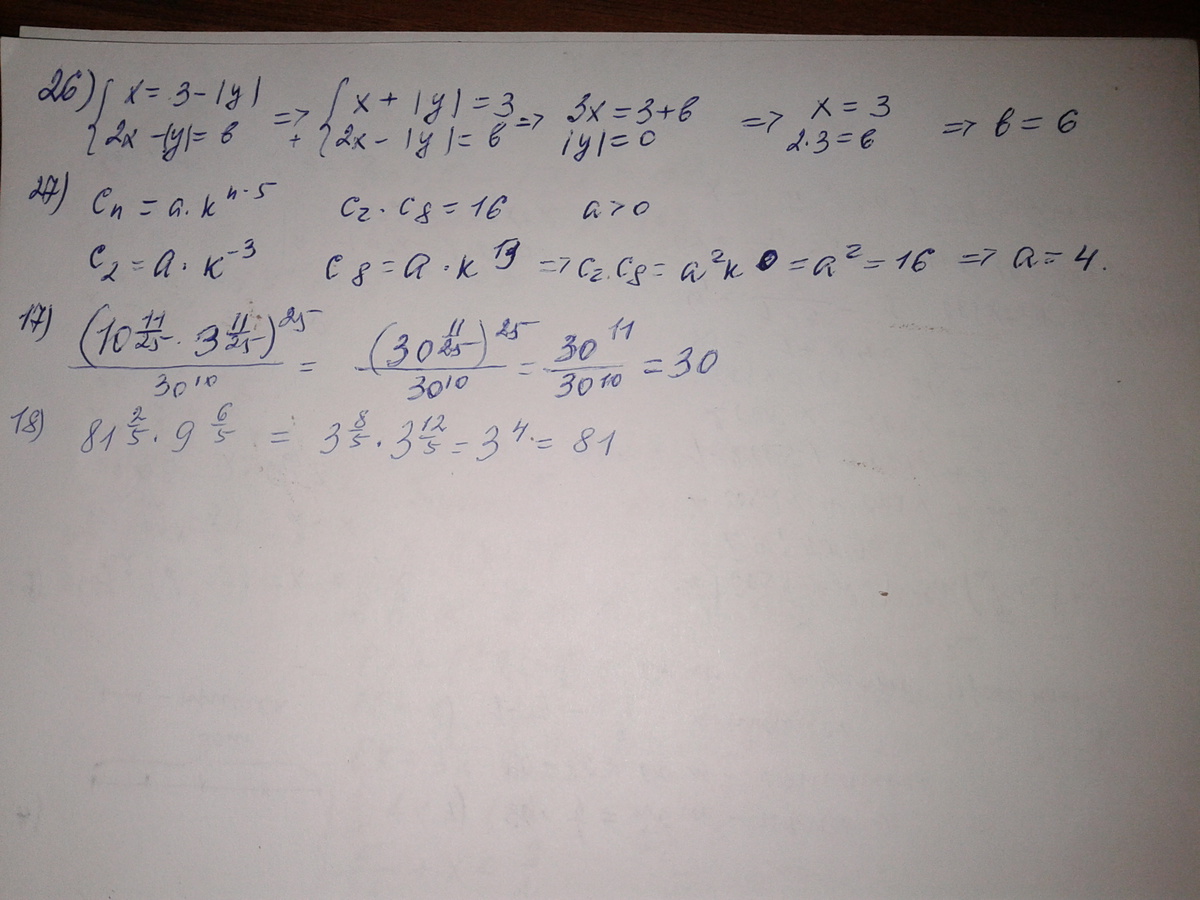 26) { x = 3 - |y| => { x + |y| = 3 => 3x = 3 + в => x = 3 => в = 6
{ 2x - |y| = в + { 2x - |y| = в |y| = 0 2·3 = в
27) Cn = a·k^(n-5) C2·C8 = 16 a > 0
C2 = a·k^(-3) C8 = a·k^3 => C2·C8 = a²k^0 = a² = 16 => a = 4.
17) (10^(11/25)·3^(11/25))^25 / 30^10 = (30^(11/25))^25 / 30^10 = 30^11 / 30^10 = 30
18) 81^(2/5)·9^(6/5) = 3^(8/5)·3^(12/5) = 3^4 = 81